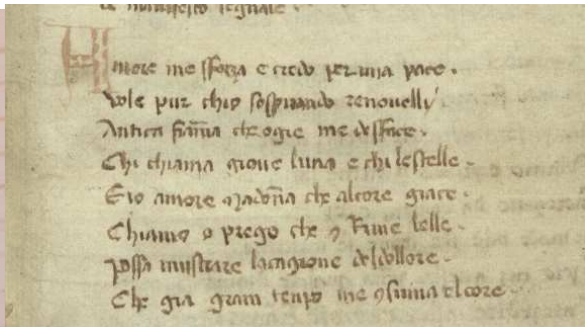 de manifesto segnale.
Amore me sforza e credo per mia pace.
Vole pur chio sospirando renovelli
Antica fiãma che ogie me desface.
Chi chiama giove luna e chi lestelle.
E io amore 9 madõna che alcore giace.
Chiamo o prego che 9 Rime belle.
possa mustrare lacagione deldollore.
Che gia gram tempo me 9suma elcore.